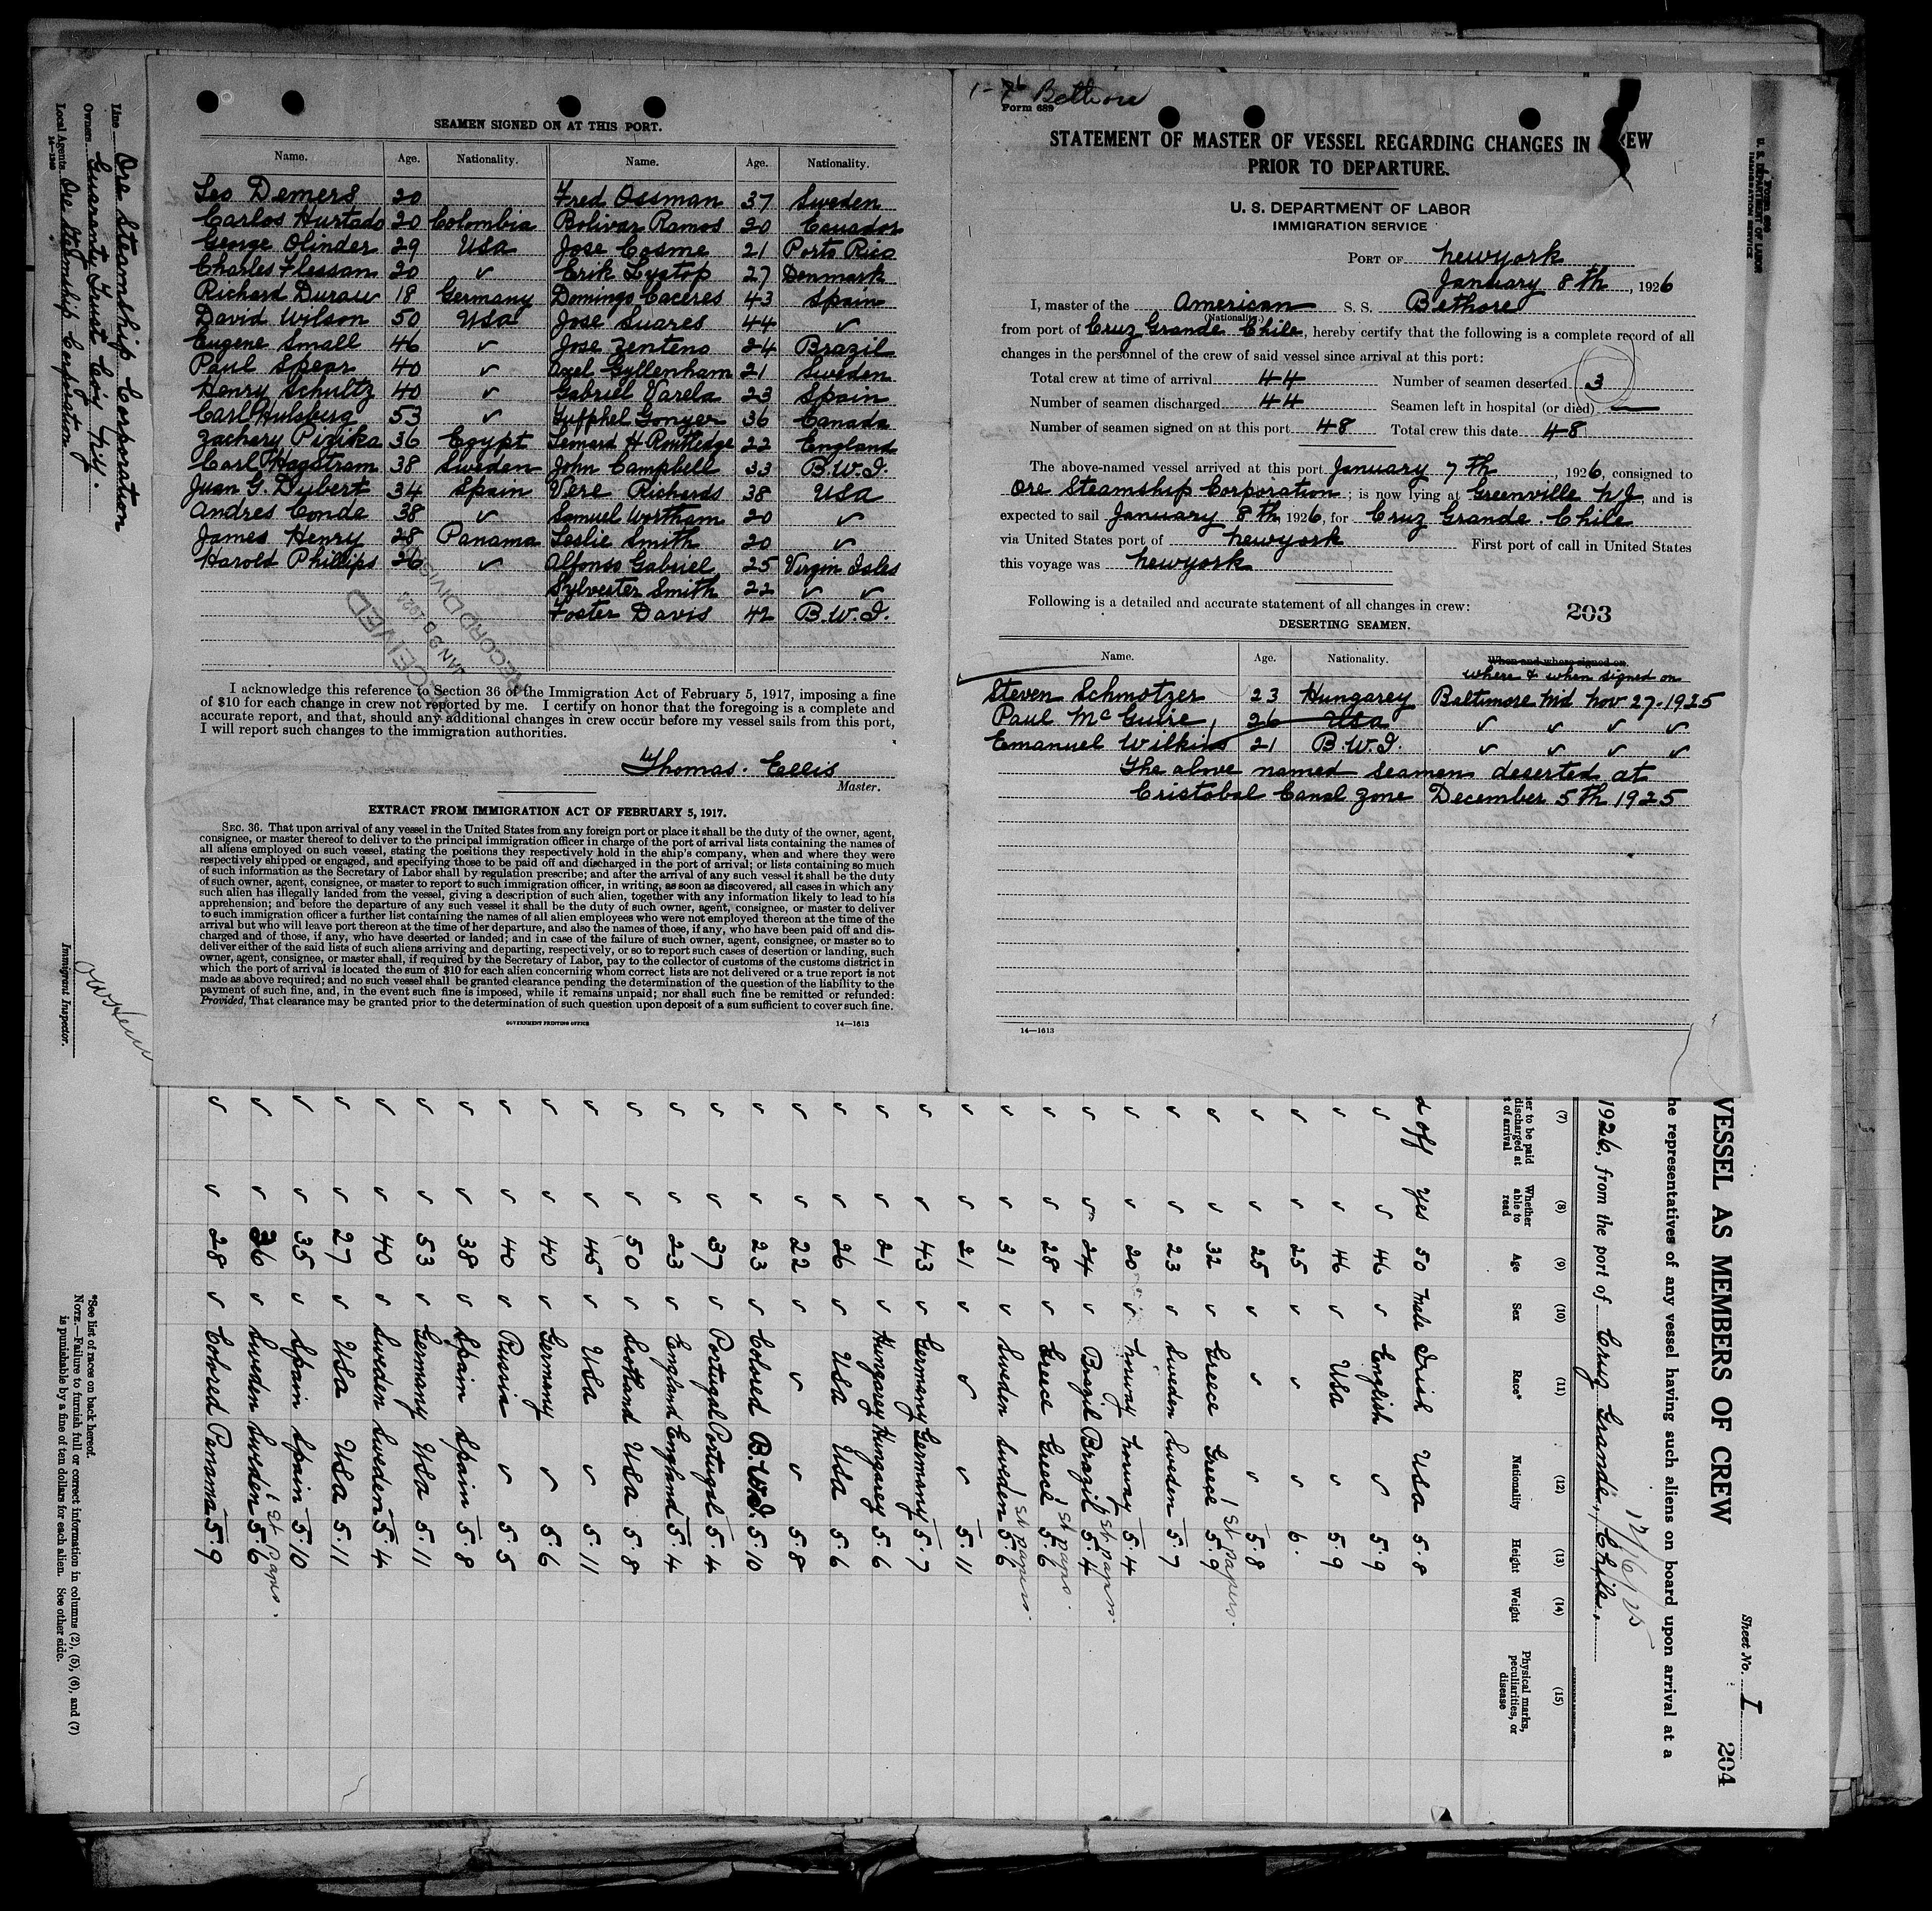 SEAMEN SIGNED ON AT THIS PORT.
Name. Age. Nationality. Name. Age. Nationality.
Leo Demers 20 Fred Ossman 37 Sweden
Carlos Hurtado 20 Colombia Bolivar Ramos 20 Ecuador
George Olinder 29 USA Jose Cosme 21 Porto Rico
Charles Flessan 20 ✓ Erik Lystop 27 Denmark
Richard Durau 18 Germany Domingo Caceres 43 Spain
David Wilson 50 USA Jose Suares 44 ✓
Eugene Small 46 ✓ Jose Zenteno 24 Brazil
Paul Spear 40 ✓ Axel Gyllenham 21 Sweden
Henry Schultz 40 ✓ Gabriel Varela 23 Spain
Carl Hulsberg 53 ✓ Gonyer 36 Canada
Zachery Pirika 36 Egypt Leonard H Routledge 22 England
Carl Hagstram 38 Sweden John Campbell 33 B.W.I.
Juan G. Dubert 34 Spain Vere Richards 38 USA
Andres Conde 38 ✓ Samuel Wortham 20 ✓
James Henry 28 Panama Leslie Smith 20 ✓
Harold Phillips 26 ✓ Alfonso Gabriel 25 Virgin Isles
Sylvester Smith 22 ✓ ✓
Foster Davis 42 B.W.I.
RECEIVED
RECORD DIVIS
I acknowledge this reference to Section 36 of the Immigration Act of February 5, 1917, imposing a fine
of $10 for each change in crew not reported by me. I certify on honor that the foregoing is a complete and
accurate report, and that, should any additional changes in crew occur before my vessel sails from this port,
I will report such changes to the immigration authorities.
Thomas. Ellis
Master.
EXTRACT FROM IMMIGRATION ACT OF FEBRUARY 5, 1917.
SEC. 36. That upon arrival of any vessel in the United States from any foreign port or place it shall be the duty of the owner, agent,
consignee, or master thereof to deliver to the principal immigration officer in charge of the port of arrival lists containing the names of
all aliens employed on such vessel, stating the positions they respectively hold in the ship's company, when and where they were
respectively shipped or engaged, and specifying those to be paid off and discharged in the port of arrival; or lists containing so much
of such information as the Secretary of Labor shall by regulation prescribe; and after the arrival of any such vessel it shall be the duty
of such owner, agent, consignee, or master to report to such immigration officer, in writing, as soon as discovered, all cases in which any
such alien has illegally landed from the vessel, giving a description of such alien, together with any information likely to lead to his
apprehension; and before the departure of any such vessel it shall be the duty of such owner, agent, consignee, or master to deliver
to such immigration officer a further list containing the names of all alien employees who were not employed thereon at the time of the
arrival but who will leave port thereon at the time of her departure, and also the names of those, if any, who have been paid off and dis-
charged and of those, if any, who have deserted or landed; and in case of the failure of such owner, agent, consignee, or master so to
deliver either of the said lists of such aliens arriving and departing, respectively, or so to report such cases of desertion or landing, such
owner, agent, consignee, or master shall, if required by the Secretary of Labor, pay to the collector of customs of the customs district in
which the port of arrival is located the sum of $10 for each alien concerning whom correct lists are not delivered or a true report is not
made as above required; and no such vessel shall be granted clearance pending the determination of the question of the liability to the
payment of such fine, and, in the event such fine is imposed, while it remains unpaid; nor shall such fine be remitted or refunded:
Provided, That clearance may be granted prior to the determination of such question upon deposit of a sum sufficient to cover such fine.
GOVERNMENT PRINTING OFFICE 14—1613
Bethore
Form 689
STATEMENT OF MASTER OF VESSEL REGARDING CHANGES IN EW
PRIOR TO DEPARTURE.
U. S. DEPARTMENT OF LABOR
IMMIGRATION SERVICE
PORT OF newyork
January 8th, 1926
I, master of the American S. S. Bethore
(Nationality.)
from port of Cruz Grande Chile, hereby certify that the following is a complete record of all
changes in the personnel of the crew of said vessel since arrival at this port:
Total crew at time of arrival 44 Number of seamen deserted 3
Number of seamen discharged 44 Seamen left in hospital (or died) —
Number of seamen signed on at this port 48 Total crew this date 48
The above-named vessel arrived at this port January 7th, 1926, consigned to
Ore Steamship Corporation; is now lying at Greenville NJ, and is
expected to sail January 8th, 1926, for Cruz Grande Chile
via United States port of newyork First port of call in United States
this voyage was newyork
Following is a detailed and accurate statement of all changes in crew: 203
DESERTING SEAMEN.
Name. Age. Nationality. When and where signed on.
where & when signed on
Steven Schmotzer 23 Hungarey Baltimore Md Nov 27-1925
Paul McGuire 26 USA ✓ ✓ ✓ ✓
Emanuel Wilkins 21 B.W.I. ✓ ✓ ✓ ✓
The above named seamen deserted at
Cristobal Canal Zone December 5th 1925
14—1613
Form 689
U. S. DEPARTMENT OF LABOR
IMMIGRATION SERVICE
Sheet No. I
204
VESSEL AS MEMBERS OF CREW
he representatives of any vessel having such aliens on board upon arrival at a
1926, from the port of Cruz Grande, Chile.
12/6/25
(7) (8) (9) (10) (11) (12) (13) (14) (15)
her to be paid discharged at t of arrival Whether able to read Age Sex Race* Nationality Height Weight Physical marks, peculiarities, or disease
d off yes 50 male Irish USA 5.8
✓ ✓ 46 ✓ English ✓ 5.9
✓ ✓ 46 ✓ USA ✓ 5.9
✓ ✓ 25 ✓ ✓ ✓ 6.
✓ ✓ 25 ✓ ✓ ✓ 5.8
✓ ✓ 32 ✓ Greece Greece 5.9 1st papers.
✓ ✓ 23 ✓ Sweden Sweden 5.7
✓ ✓ 20 ✓ Norway Norway 5.4
✓ ✓ 24 ✓ Brazil Brazil 5.4 1st papers.
✓ ✓ 28 ✓ Greece Greece 5.6 1st papers.
✓ ✓ 31 ✓ Sweden Sweden 5.6 1st papers.
✓ ✓ 21 ✓ ✓ ✓ 5.11
✓ ✓ 43 ✓ Germany Germany 5.7
✓ ✓ 21 ✓ Hungarey Hungarey 5.6
✓ ✓ 26 ✓ USA USA 5.6
✓ ✓ 22 ✓ ✓ ✓ 5.8
✓ ✓ 23 ✓ Colored B.W.I. 5.10
✓ ✓ 37 ✓ Portugal Portugal 5.4
✓ ✓ 23 ✓ England England 5.4
✓ ✓ 50 ✓ Scotland USA 5.8
✓ ✓ 45 ✓ USA ✓ 5.11
✓ ✓ 40 ✓ Germany ✓ 5.6
✓ ✓ 40 ✓ Russia ✓ 5.5
✓ ✓ 38 ✓ Spain Spain 5.8
✓ ✓ 53 ✓ Germany USA 5.11
✓ ✓ 40 ✓ Sweden Sweden 5.4
✓ ✓ 27 ✓ USA USA 5.11
✓ ✓ 35 ✓ Spain Spain 5.10
✓ ✓ 36 ✓ Sweden Sweden 5.6 1st Paps.
✓ ✓ 28 ✓ Colored Panama 5.9
Line Ore Steamship Corporation
Owners Guaranty Trust Coiy N.Y.
Local Agents Ore Steamship Corporation
14—1240
Immigrant Inspector.
*See list of races on back hereof.
NOTE.—Failure to furnish full or correct information in columns (2), (5), (6), and (7)
is punishable by a fine of ten dollars for each alien. See other side.